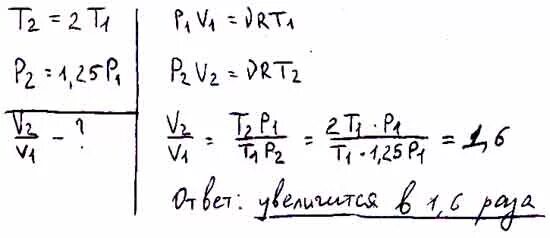 T₂ = 2T₁
P₂ = 1,25P₁
V₂/V₁ - ?
P₁V₁ = νRT₁
P₂V₂ = νRT₂
V₂/V₁ = T₂P₁/T₁P₂ = 2T₁·P₁/T₁·1,25P₁ = 1,6
Ответ: увеличится в 1,6 раза